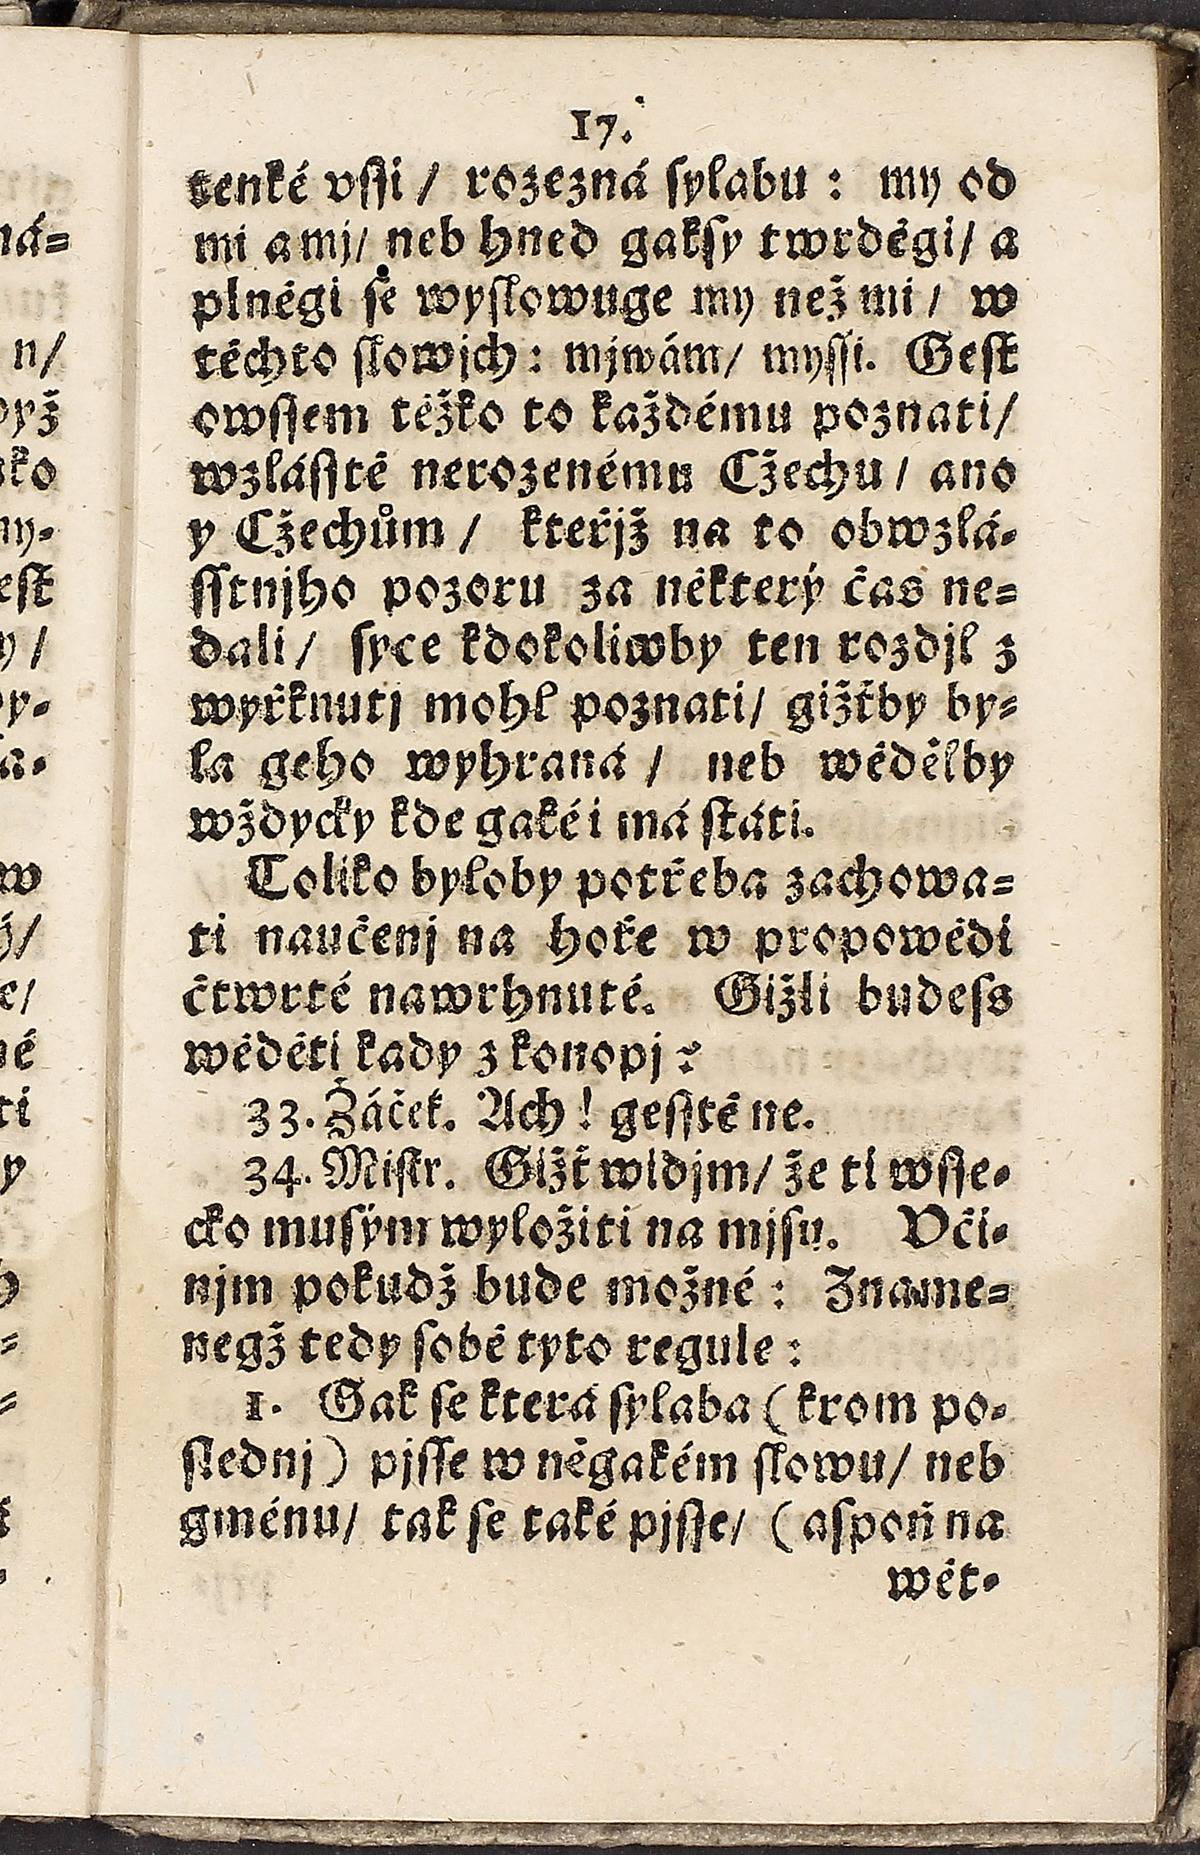 17.
tenké vſſi / rozezná ſylabu : my od
mi a mj/ neb hned gakſy twrděgi/ a
plněgi ſe wyſlowuge my než mi / w
těchto ſlowjch : mjwám/ myſſi. Geſt
owſſem těžko to každému poznati/
wzláſſtě nerozenému Cžechu / ano
y Cžechům / kteřjž na to obwzlá-
ſſtnjho pozoru za některý čas ne=
dali / ſyce kdokoliwby ten rozdjl z
wyřknutj mohl poznati/ gižťby by=
la geho wyhraná / neb wědělby
wždycky kde gaké i má ſtáti.
Toliko byloby potřeba zachowa=
ti naučenj na hoře w propowědi
čtwrté nawrhnuté. Gižli budeſs
wěděti kady z konopj ?
33. Žáček. Ach ! geſſtě ne.
34. Miſtr. Gižť widjm/ že ti wſſe-
cko muſým wyložiti na mjſu. Vči-
njm pokudž bude možné : Zname=
negž tedy ſobě tyto regule :
1. Gak ſe která ſylaba ( krom po-
ſlednj ) pjſſe w něgakém ſlowu/ neb
gménu/ tak ſe také pjſſe/ ( aſpoň na
wět-
ná=
n/
dyž
ko
ny-
eſt
y /
y-
a-
w
ý/
e/
né
ti
y
=
=